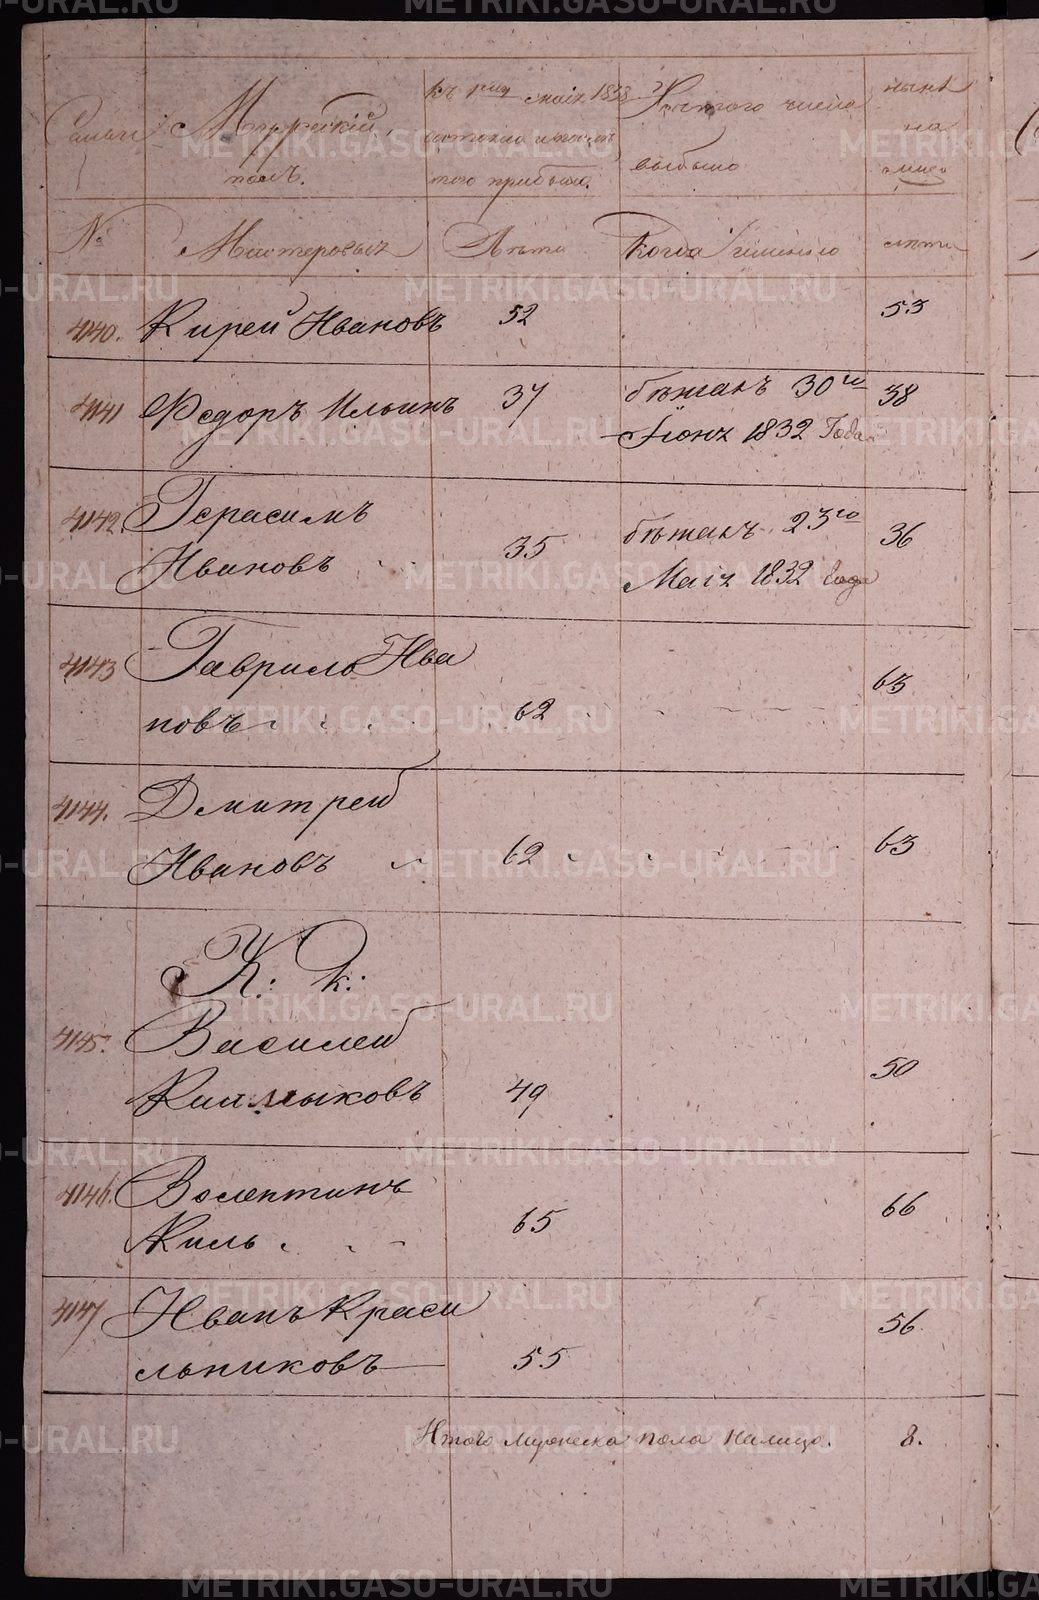 Семьи
Мужескій
полъ.
къ 1му маія 1833
состояло и послѣ
того прибыло.
Изътого числа
выбыло
нынѣ
на
лицо
№
Мастеровыхъ
Лѣта
Когда именно
лѣта
4140. Кирей Ивановъ 52 53
4141 Федоръ Ильинъ 37 бѣжалъ 30го 38
Іюня 1832 Года
4142. Герасимъ
Ивановъ 35 бѣжалъ 23го 36
Маія 1832 Года
4143 Гаврило Ива
новъ 62 63
4144. Дмитрей
Ивановъ 62 63
К: к:
4145. Василей
Калмыковъ 49 50
4146. Волентинъ
Киль 65 66
4147 Иванъ Краси
льниковъ 55 56.
Итого Мужеска пола налицо. 8.
METRIKI.GASO-URAL.RU